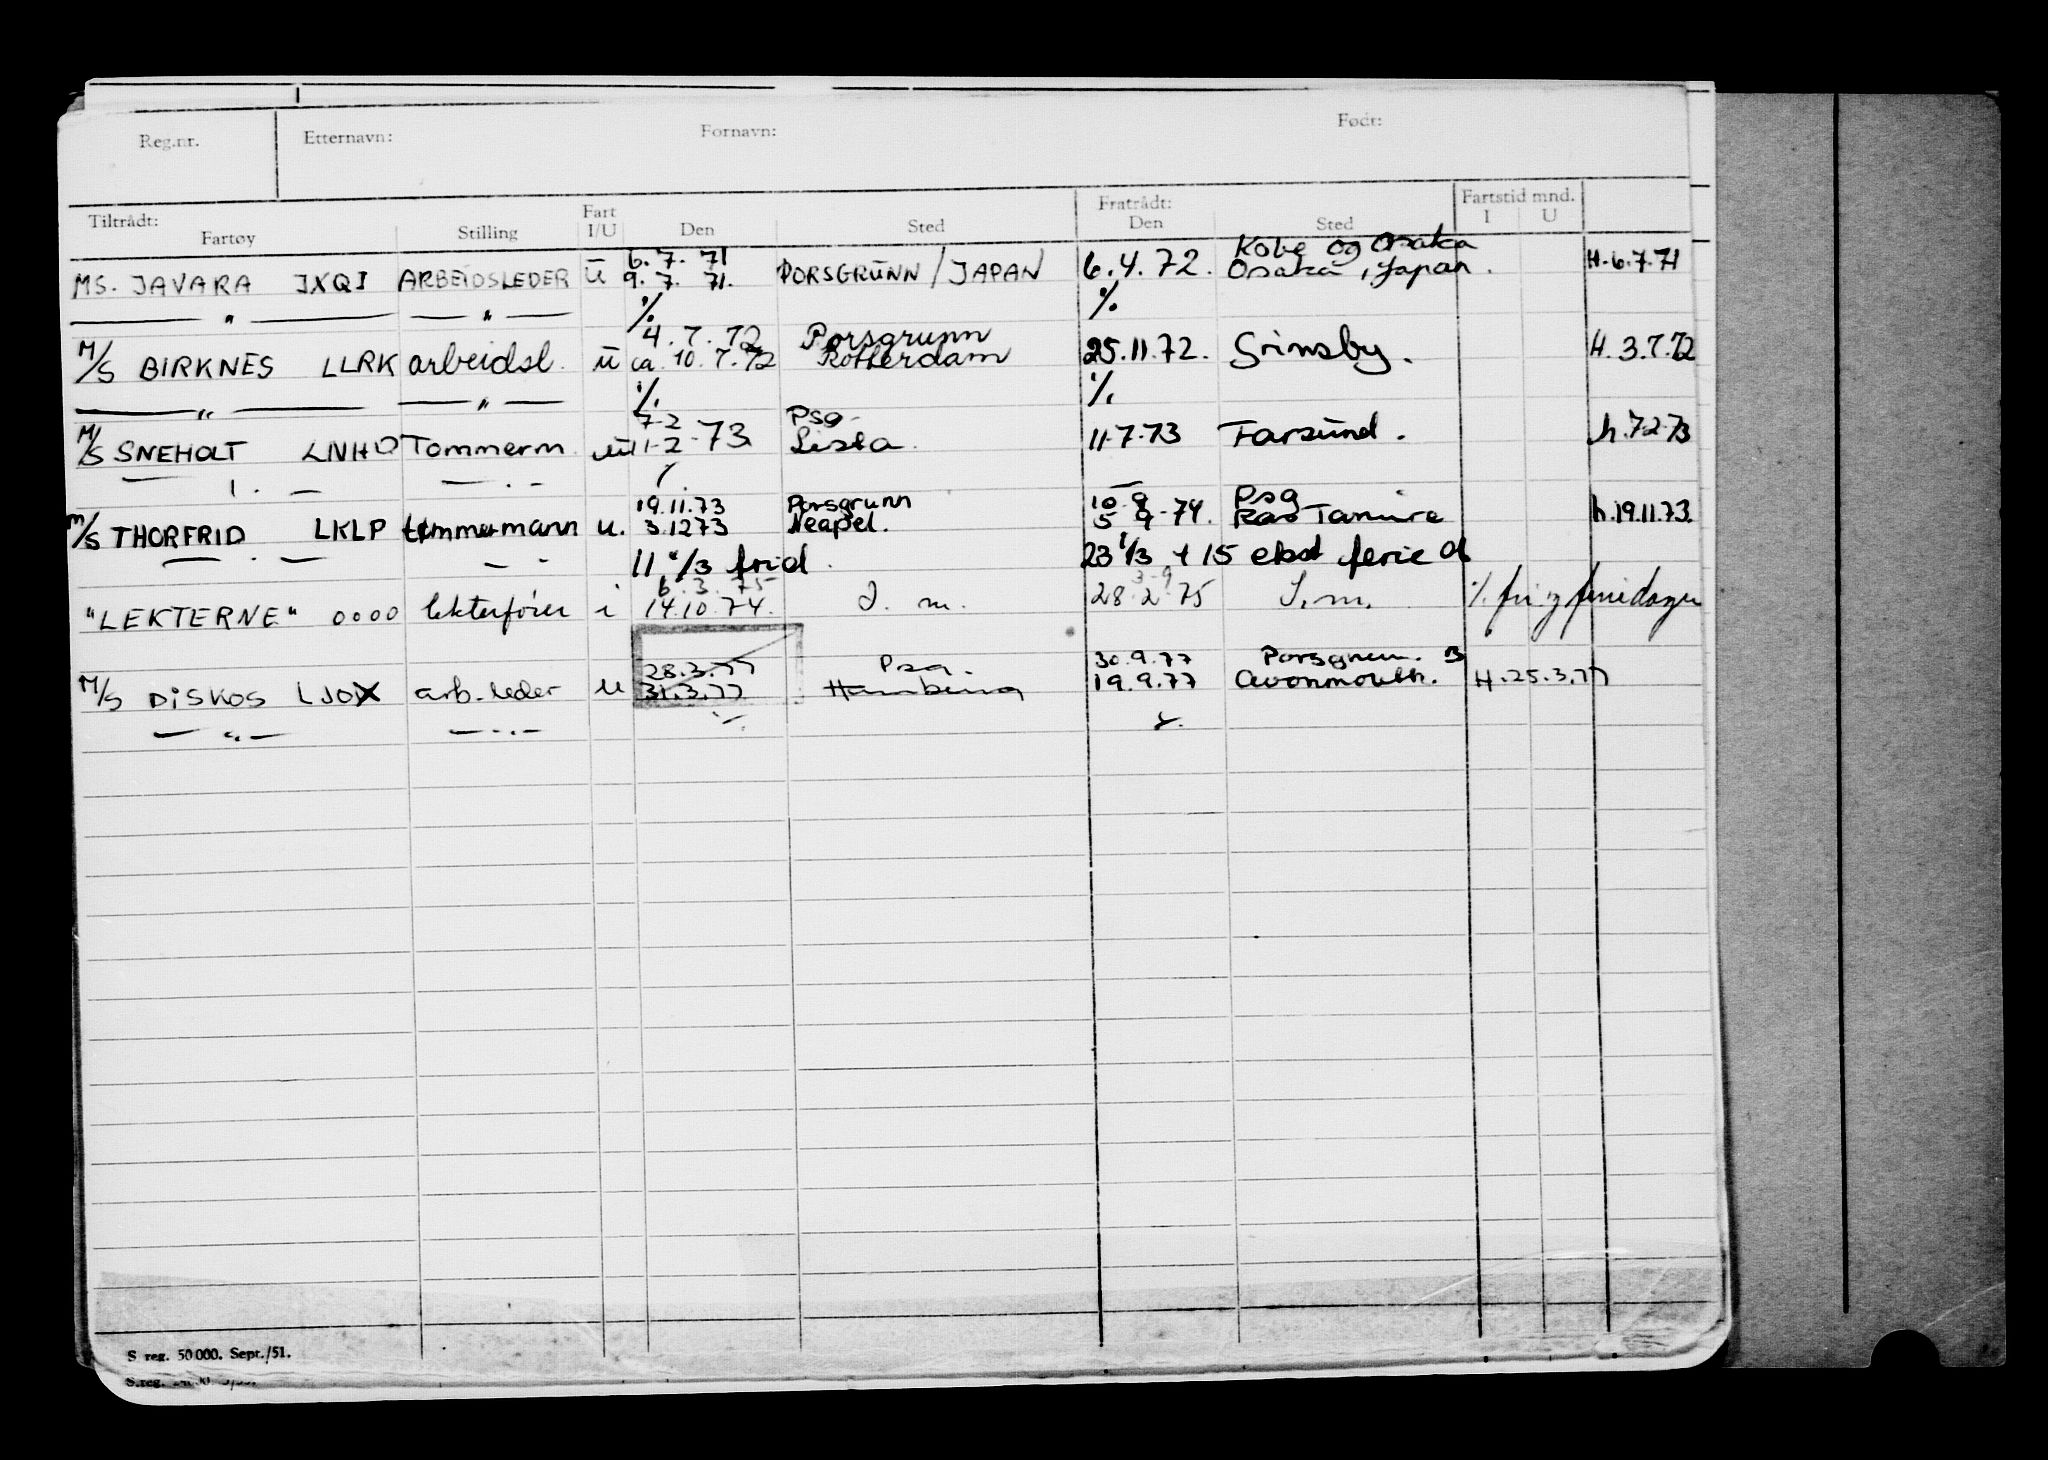 Reg.nr. Etternavn: Fornavn: Født:
Tiltrådt: Fart Fratrådt: Fartstid mnd.
Fartøy Stilling I/U Den Sted Den Sted I U
6.7.71 Kobe og Osaka
MS. JAVARA JXQI ARBEIDSLEDER u 9.7.71. PORSGRUNN/JAPAN 6.4.72. Osaka, Japan. H.6.7.71
— " — — " — % %
4.7.72 Porsgrunn
M/S BIRKNES LLRK arbeidsl. u ca. 10.7.72 Rotterdam 25.11.72. Grimsby. H.3.7.72
— " — — " — % %
7-2 Psg.
M/S SNEHOLT LNHO Tømmerm. u 11-2-73. Lista. 11-7-73 Farsund. h.7.2.73
19.11.73 Porsgrunn 10-9 Psg
M/S THORFRID LKLP tømmermann u. 3.1273 Neapel. 5 9-74. Ras Tanura h.19.11.73.
11 2/3 frid. 23 1/3 + 15 ekst ferie d
6.3.75 3-9
"LEKTERNE" 0000 lekterfører i 14.10.74. S.m. 28.2.75 S.m. % fri og feriedager
28.3.77 Psg. 30.9.77 Porsgrunn.
M/S DISKOS LJOX arb.leder u 31.3.77 Hamburg 19.9.77 Avonmouth. H.25.3.77
— " — — " —
S reg. 50 000. Sept./51.
S.reg.